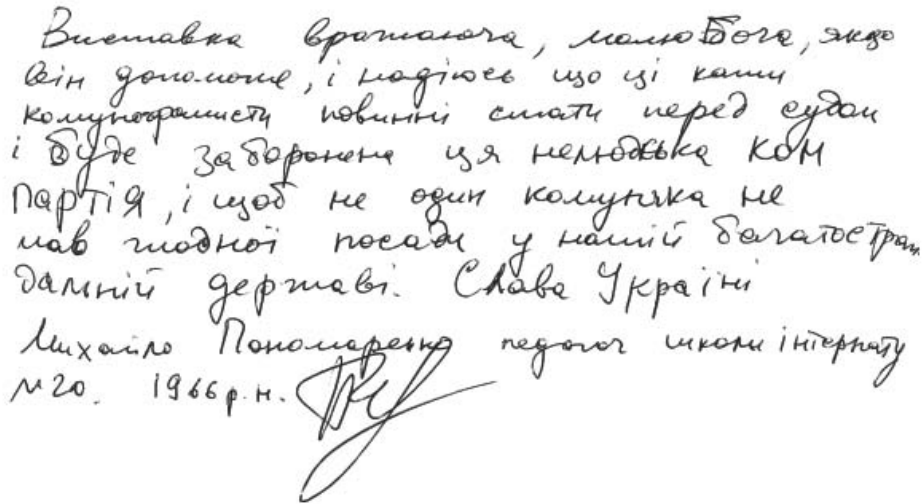 Виставка вражаюча, молю Бога, якщо
він допоможе, і надіюсь що ці кати
комунофашисти повинні стати перед судом
і буде заборонена ця нелюдська ком
партія, і щоб не один комуняка не
мав жодної посади у нашій багатостраж
дальній державі. Слава Україні
Михайло Пономаренко педагог школи інтернату
№20. 1966 р.н.